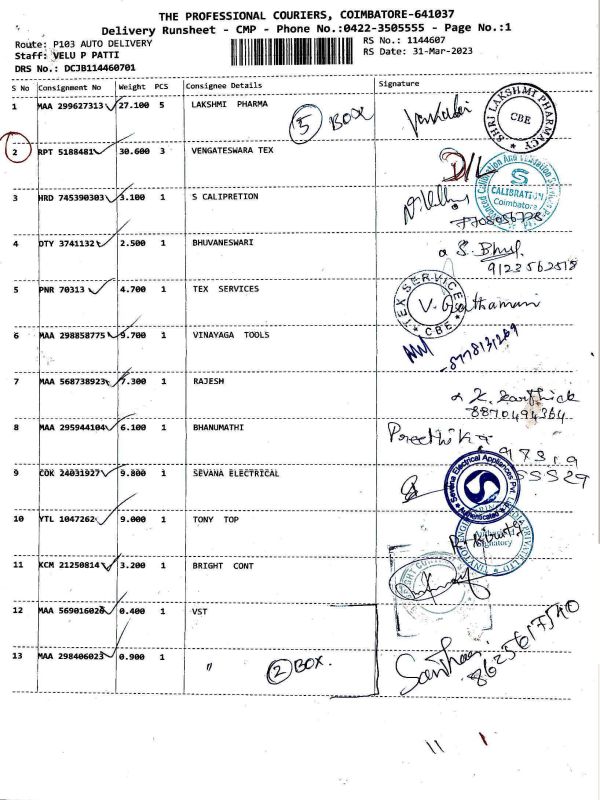 THE PROFESSIONAL COURIERS, COIMBATORE-641037
Delivery Runsheet - CMP - Phone No.:0422-3505555 - Page No.:1
Route: P103 AUTO DELIVERY
RS No.: 1144607
Staff: VELU P PATTI
RS Date: 31-Mar-2023
DRS No.: DCJB114460701
S No Consignment No Weight PCS Consignee Details Signature
1 MAA 299627313 27.100 5 LAKSHMI PHARMA
5 BOX
SHRI LAKSHMI PHARMACY CBE
2 RPT 5188481 30.600 3 VENGATESWARA TEX
D/L
3 HRD 745390303 3.100 1 S CALIPRETION
CALIBRATION
Coimbatore
7708056728
4 DTY 3741132 2.500 1 BHUVANESWARI
S. Bhul
9123562518
5 PNR 70313 4.700 1 TEX SERVICES
TEX SERVICE CBE
6 MAA 298858775 9.700 1 VINAYAGA TOOLS
7 MAA 568738923 7.300 1 RAJESH
K. Karthick
8870494364
8 MAA 295944104 6.100 1 BHANUMATHI
Preethika
9 COK 24031927 9.800 1 SEVANA ELECTRICAL
Sevana Electrical Appliances Pvt.
10 YTL 1047262 9.000 1 TONY TOP
Signatory
11 KCM 21250814 3.200 1 BRIGHT CONT
12 MAA 569016020 0.400 1 VST
13 MAA 298406023 0.900 1 "
2 BOX.
8625617540
11